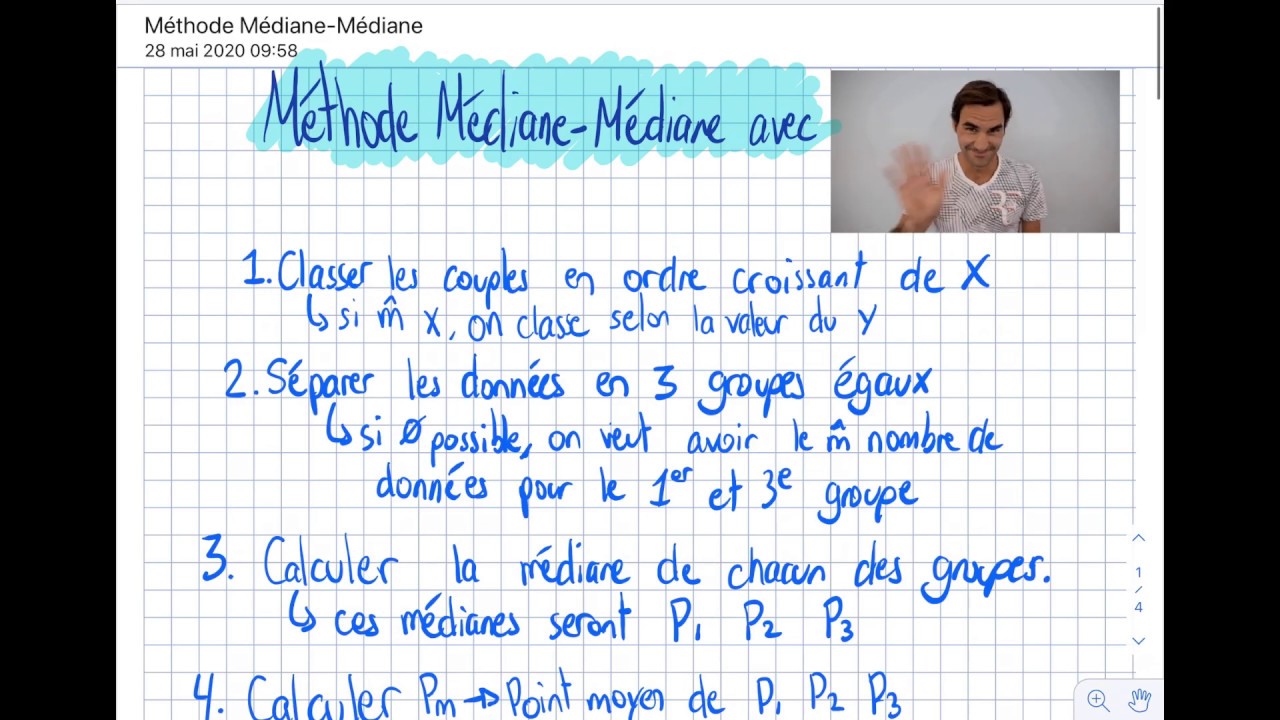 Méthode Médiane-Médiane
28 mai 2020 09:58
Méthode Médiane-Médiane avec
RF
1. Classer les couples en ordre croissant de X
↳ si m̂ x, on classe selon la valeur du y
2. Séparer les données en 3 groupes égaux
↳ si Ø possible, on veut avoir le m̂ nombre de
données pour le 1er et 3e groupe
3. Calculer la médiane de chacun des groupes.
↳ ces médianes seront P₁ P₂ P₃
4. Calculer Pm → Point moyen de P₁ P₂ P₃
1
/
4